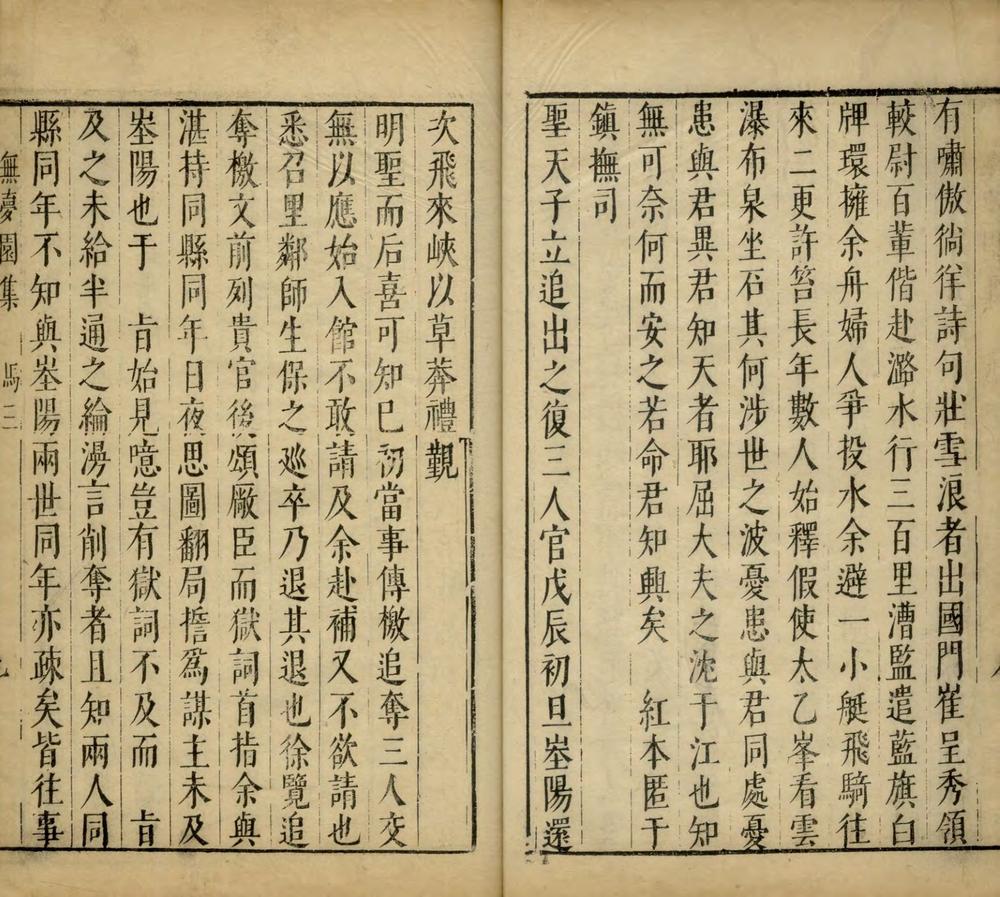 有嘯傲徜徉詩句壯雪浪者出國門崔呈秀領
較尉百輩偕赴潞水行三百里漕監遣藍旗白
牌環擁余舟婦人爭投水余避一小艇飛騎往
來二更許笞長年數人始釋假使太乙峯看雲
瀑布泉坐石其何涉世之波憂患與君同處憂
患與君異君知天者耶屈大夫之沈于江也知
無可奈何而安之若命君知興矣　紅本匿于
鎮撫司
聖天子立追出之復三人官戊辰初旦峚陽還
次飛來峽以草莽禮觀
明聖而后喜可知巳初當事傳檄追奪三人交
無以應始入館不敢請及余赴補又不欲請也
悉召里鄰師生保之廵卒乃退其退也徐覽追
奪檄文前列貴官後頌厰臣而獄詞首指余與
湛持同縣同年日夜思圖翻局擔爲謀主未及
峚陽也于　㫖始見噫豈有獄詞不及而　㫖
及之未給半通之綸澷言削奪者且知兩人同
縣同年不知與峚陽兩世同年亦疎矣皆往事
無夢園集　馬三